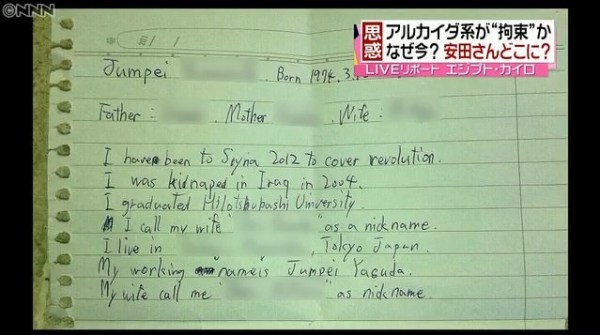 NNN
思惑
アルカイダ系が“拘束”か
なぜ今？安田さんどこに？
LIVEリポート エジプト・カイロ
Jumpei , Born 1974, 3.
Father : , Mother , Wife :
I have been to Syria 2012 to cover revolution.
I was kidnaped in Iraq in 2004.
I graduated Hitotsubashi University.
I call my wife “ ” as a nickname.
I live in , Tokyo Japan.
My working name is Jumpei Yasuda.
My wife call me “ ” as nickname.